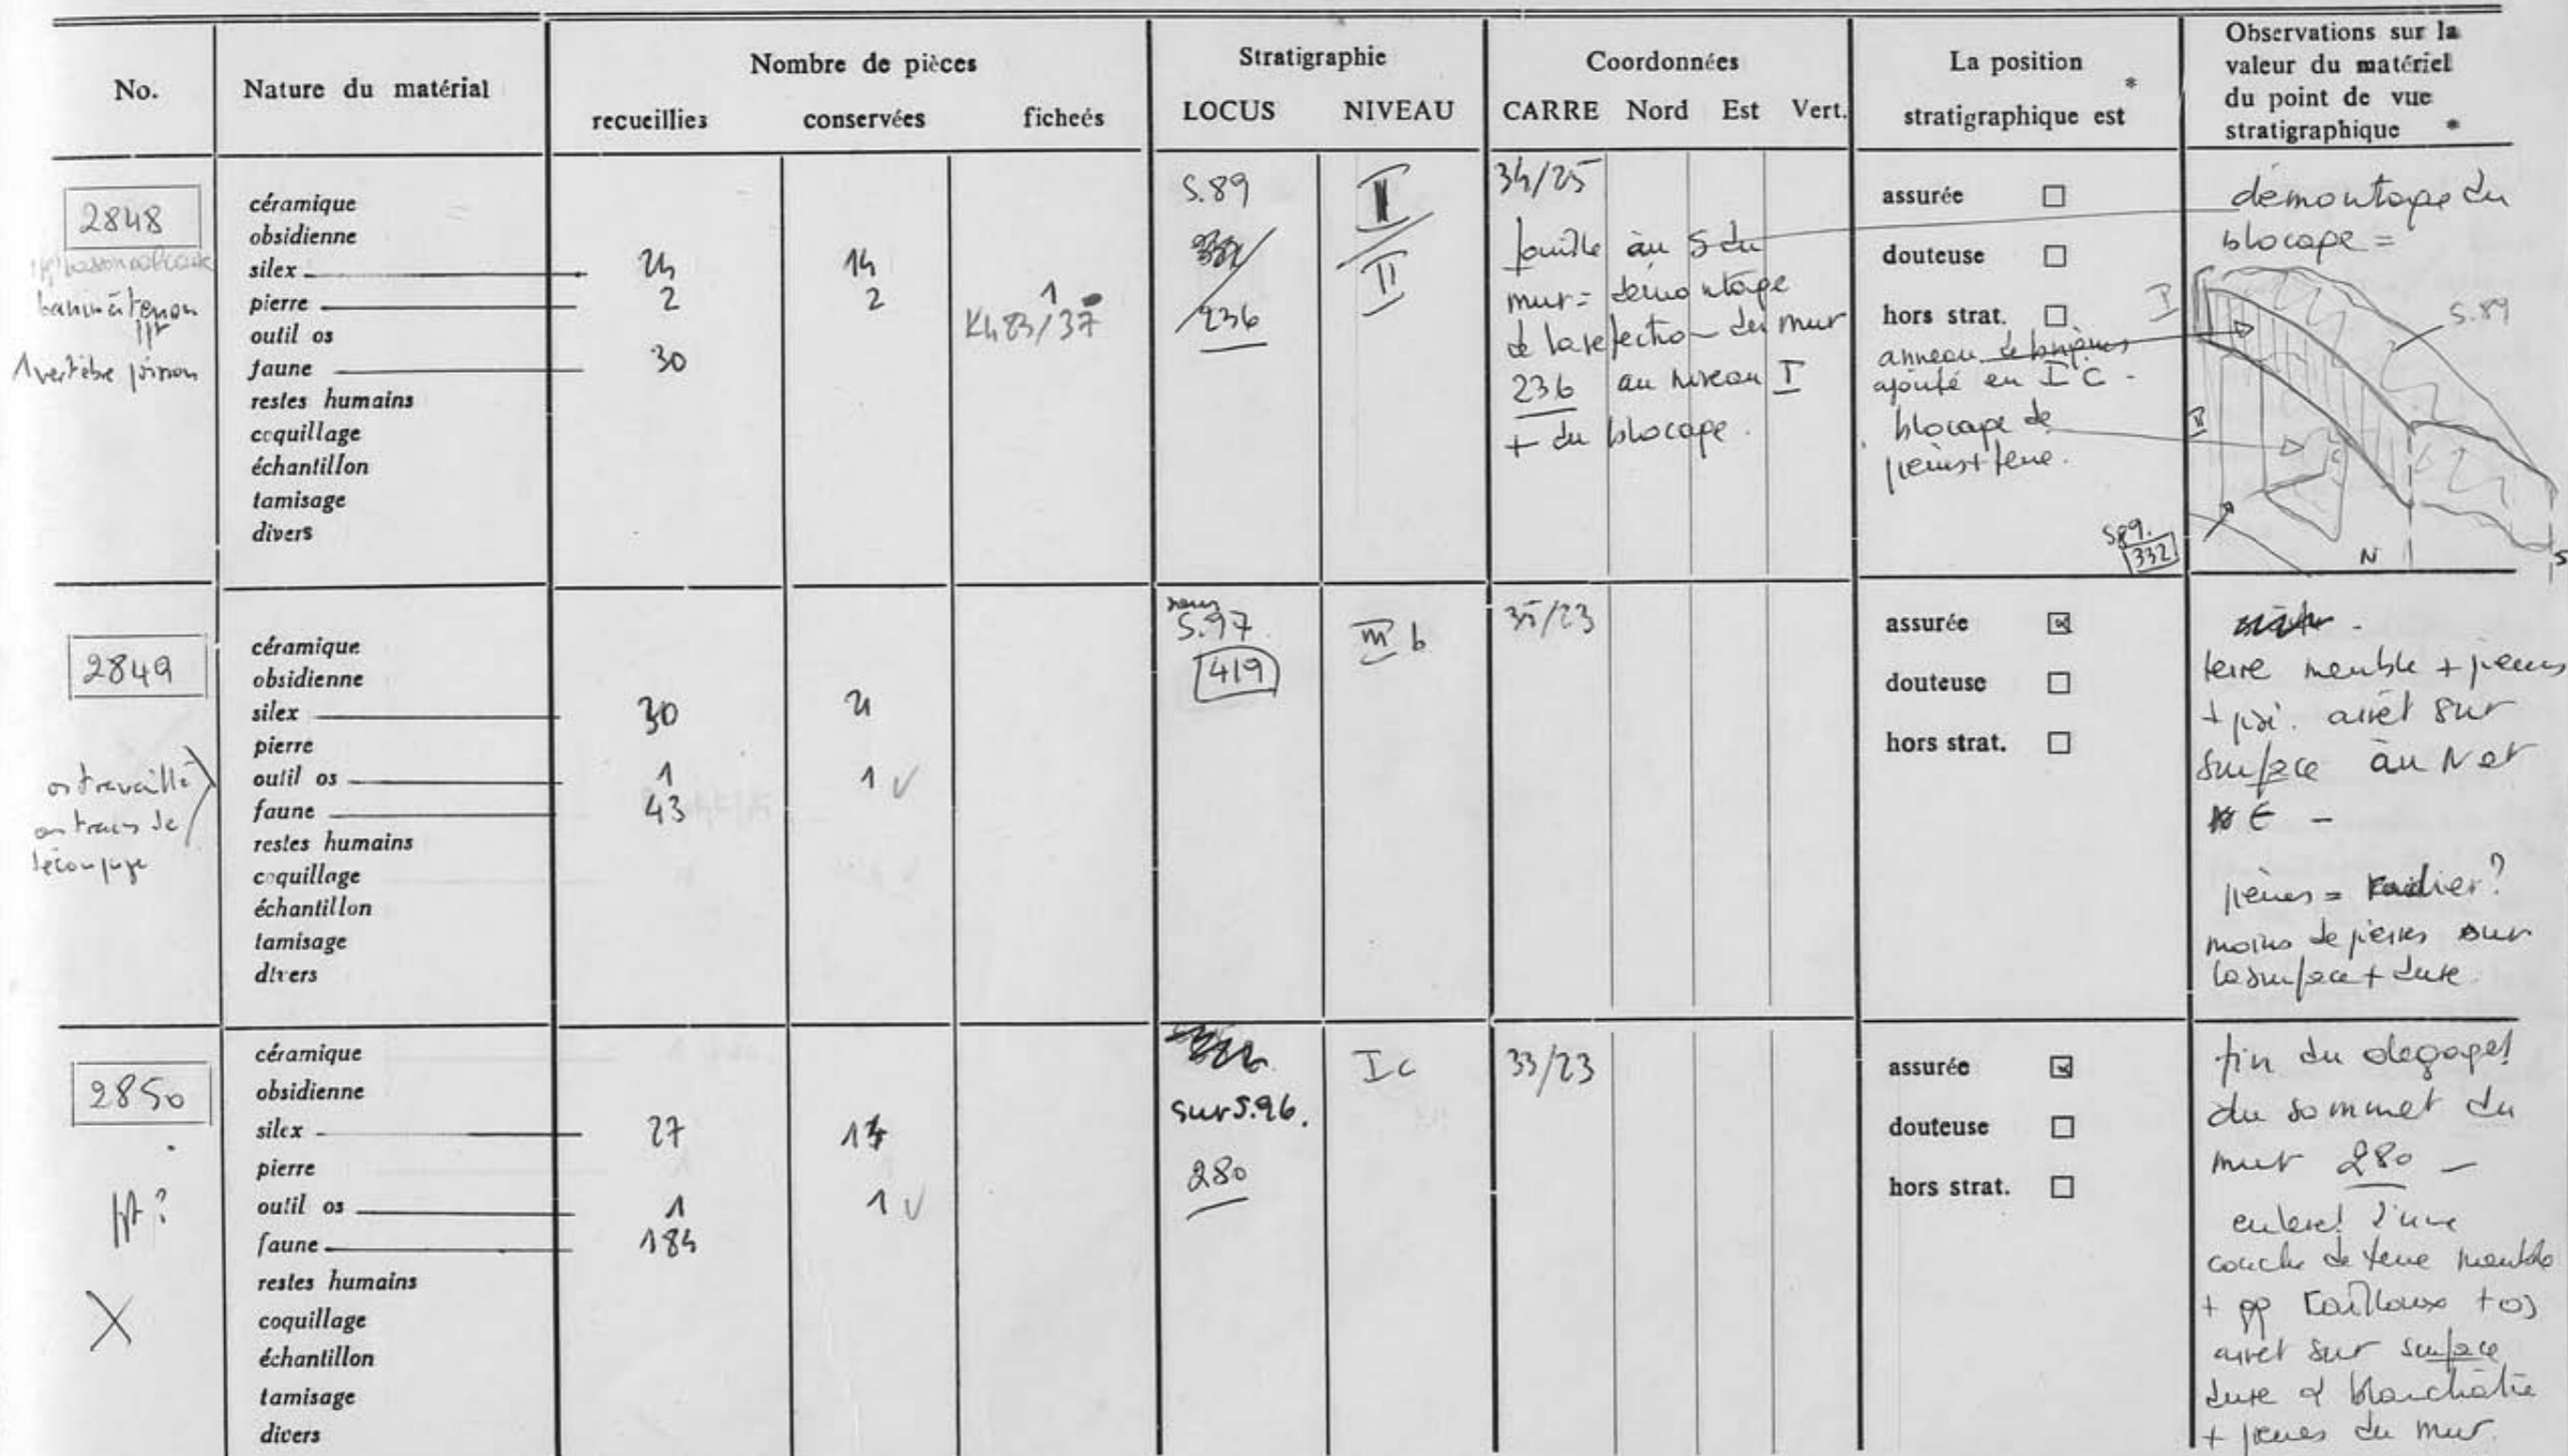 No.
Nature du matérial
Nombre de pièces
recueillies conservées ficheés
Stratigraphie
LOCUS NIVEAU
Coordonnées
CARRE Nord Est Vert.
La position *
stratigraphique est
Observations sur la
valeur du matériel
du point de vue
stratigraphique *
2848
1 vertèbre poisson
céramique
obsidienne
silex 24 14
pierre 2 2 1
outil os Kh 83/37
faune 30
restes humains
coquillage
échantillon
tamisage
divers
S.89
236
II
34/25
fouille au S du
mur = démontage
de la refection du mur
236 au niveau I
+ du blocage.
assurée
douteuse
hors strat.
anneau de
ajouté en I C -
blocage de
pierres + terre.
S89.
332
démontage du
blocage =
I
S.89
II
N
S
2849
os travaillé
os traces de
découpage
céramique
obsidienne
silex 30 21
pierre
outil os 1 1 ✓
faune 43
restes humains
coquillage
échantillon
tamisage
divers
sous
S.97
419
III b
35/23
assurée
douteuse
hors strat.
terre meuble + pierres
+ pisé. arrêt sur
surface au N et
E -
pierres = radier?
moins de pierres sur
la surface + dure.
2850
X
céramique
obsidienne
silex 27 14
pierre
outil os 1 1 ✓
faune 184
restes humains
coquillage
échantillon
tamisage
divers
sur S.96.
280
I c
33/23
assurée
douteuse
hors strat.
fin du dégaget
du sommet du
mur 280 -
enlevet d'une
couche de terre meuble
+ qq cailloux + os
arret sur surface
dure et blanchâtre
+ pierres du mur.